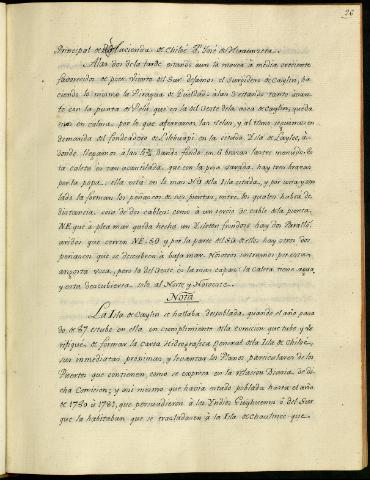 26
Principal de Rl. Hacienda de Chiloé Dn. José de
A las dos de la tarde estando aun la marea à media creciente
favorecidos de poco viento del Sur dejamos el Surgidero de Caylin, ha-
ciendo lo mismo la Piragua de Guildad: à las 3 estando tanto avan-
te con la punta de Yelu, que en la del Oeste de la isla de Caylin, queda-
mos en calma, por lo que aferraron las velas, y al remo seguimos en
demanda del fondeadero de en la citada Isla de Laylec, à-
donde llegamos à las 5¾ dando fondo en 6 brazas lastre menudo. Es-
ta caleta es tan acantilada, que con la proa varada, hay tres brazas
por la popa. ella está en la mas NO de la Isla citada, y por esta y un
lado la forman los peñascos de sus puntas, entre los quales habrá de
distancia cosa de dos cables: como à un tercio de cable de la punta
NE que à plea mar queda hecha un Islote fundoso hay dos
que corren NE.SO y por la parte del SO de ellos hay otros dos
peñascos que se descubren à baja mar. Nosotros entramos por esta
angosta voca, pero la del Oeste es la mas capaz: la Caleta tiene agua,
y esta descubierta solo al Norte y Noroeste.
Nota
La Isla de Caylin se hallaba despoblada, quando el año pasa-
do de 87 estube en ella, en cumplimiento de la comision que tube y ve-
rifiqué de formar la Carta Hidrografica general de la Isla de Chiloé,
sus inmediatas proximas, y levantar los Planos particulares de los
Puertos que contienen, como se expresa en la relacion Diaria de di-
cha Comision; y asi mismo que havia estado poblada hasta el año
de 1780 à 1781, que persuadieron à los Yndios ò del Sur
que la habitaban que se trasladasen à la Isla de Chaulinec que